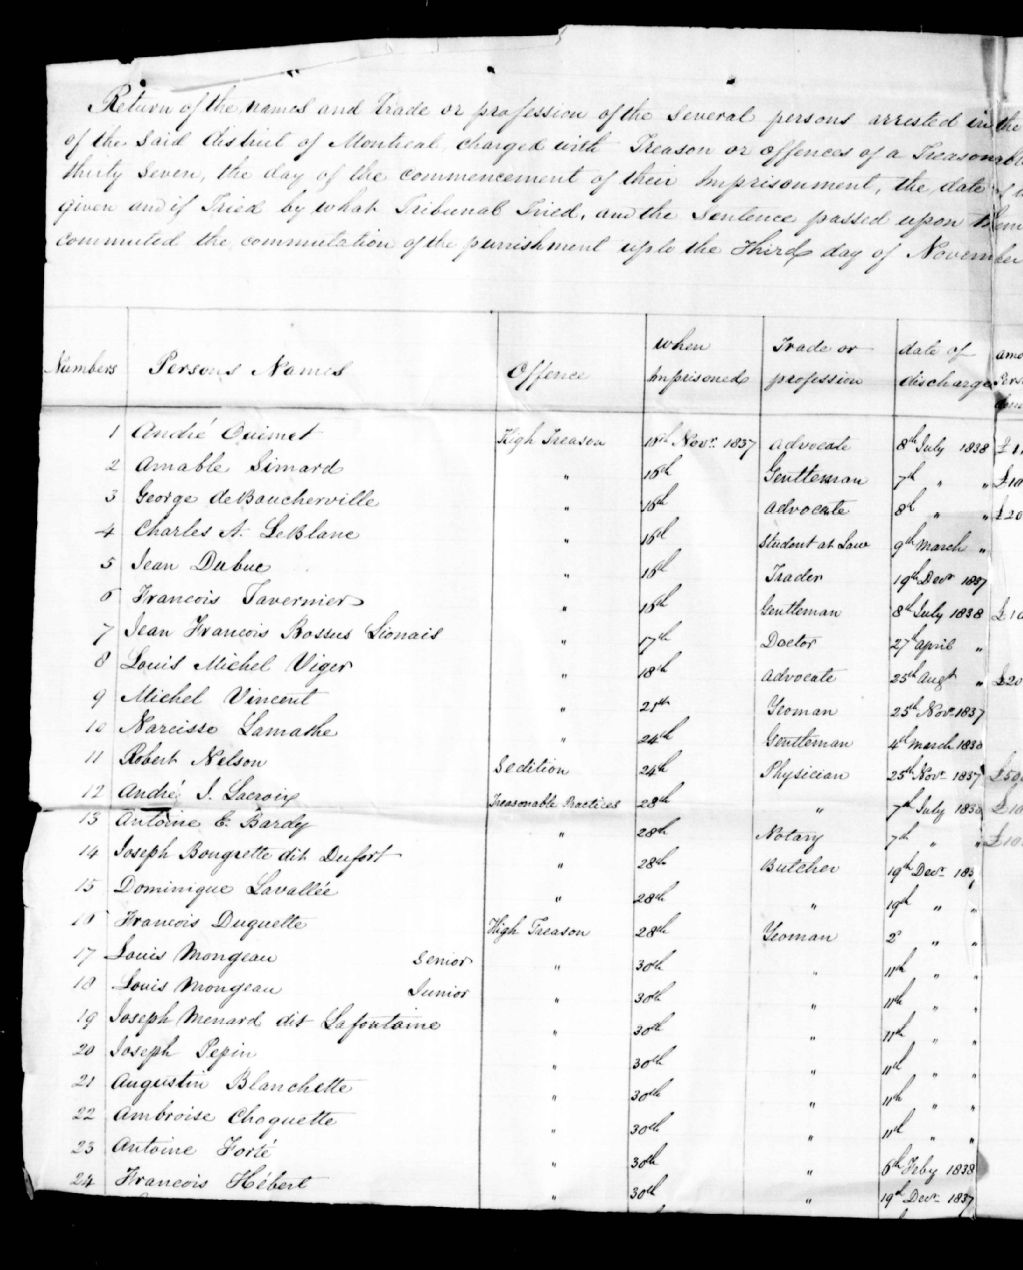 Return of the names and Trade or profession of the several persons arrested in the
of the said district of Montreal, charged with Treason or offences of a Treasonable
thirty seven, the day of the commencement of their Imprisonment, the date of
given and if Tried by what Tribunal Tried, and the Sentence passed upon them
commuted the commutation of the punishment up to the Third day of November
Numbers Persons Names Offence when Imprisoned Trade or profession date of discharge
1 André Ouimet High Treason 16th Novr. 1837 Advocate 8th July 1838
2 Amable Simard " 16th Gentleman 7th " " £10
3 George de Boucherville " 16th Advocate 8th " " £20
4 Charles A. LeBlanc " 16th Student at Law 9th March "
5 Jean Dubuc " 16th Trader 19th Decr 1837
6 Francois Tavernier " 16th Gentleman 8th July 1838
7 Jean Francois Bossus Lionais " 17th Doctor 27th April "
8 Louis Michel Viger " 18th Advocate 25th Augt " £20
9 Michel Vincent " 21st Yeoman 25th Novr 1837
10 Narcisse Lamothe " 24th Gentleman 4th March 1838
11 Robert Nelson Sedition 24th Physician 25th Novr 1837 £50
12 André J. Lacroix Treasonable Practices 28th " 7th July 1838 £10
13 Antoine E. Bardy " 28th Notary 7th " " £10
14 Joseph Bougrette dit Dufort " 28th Butcher 19th Decr 1837
15 Dominique Lavallée " 28th " 19th " "
16 Francois Duquette High Treason 28th Yeoman 2d " "
17 Louis Mongeau Senior " 30th " 11th " "
18 Louis Mongeau Junior " 30th " 11th " "
19 Joseph Menard dit Lafontaine " 30th " 11th " "
20 Joseph Pepin " 30th " 11th " "
21 Augustin Blanchette " 30th " 11th " "
22 Ambroise Choquette " 30th " 11th " "
23 Antoine Forté " 30th " 6th Feby 1838
24 Francois Hébert " 30th " 19th Decr 1837